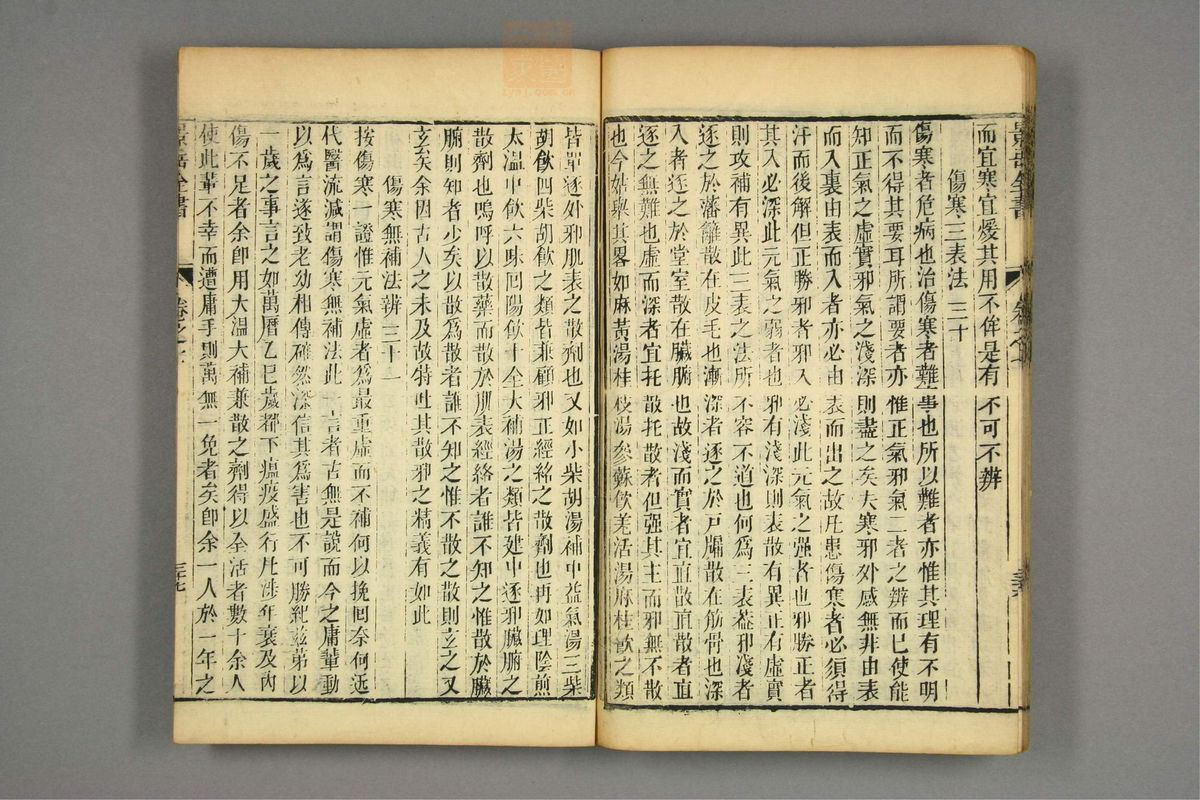 而宜寒宜煖其用不侔是有不可不辨
傷寒三表法 三十
傷寒者危病也治傷寒者難事也所以難者亦惟其理有不明
而不得其要耳所謂要者亦惟正氣邪氣二者之辨而已使能
知正氣之虛實邪氣之淺深則盡之矣夫寒邪外感無非由表
而入裏由表而入者亦必由表而出之故凡患傷寒者必須得
汗而後解但正勝邪者邪入必淺此元氣之强者也邪勝正者
其入必深此元氣之弱者也邪有淺深則表散有異正有虛實
則攻補有異此三表之法所不容不道也何為三表葢邪淺者
逐之於藩籬散在皮毛也漸深者逐之於戸牖散在筋骨也深
入者逐之於堂室散在臟腑也故淺而實者宜直散直散者直
逐之無難也虛而深者宜托散托散者但强其主而邪無不散
也今姑舉其畧如麻黃湯桂枝湯參蘇飲羗活湯麻桂飲之類
景岳全書
卷之七
三十六
皆單逐外邪肌表之散劑也又如小柴胡湯補中益氣湯三柴
胡飲四柴胡飲之類皆兼顧邪正經絡之散劑也再如理陰煎
大溫中飲六味回陽飲十全大補湯之類皆建中逐邪臟腑之
散劑也嗚呼以散藥而散於肌表經絡者誰不知之惟散於臟
腑則知者少矣以散爲散者誰不知之惟不散之散則玄之又
玄矣余因古人之未及故特吐其散邪之精義有如此
傷寒無補法辨 三十一
按傷寒一證惟元氣虛者爲最重虛而不補何以挽回奈何近
代醫流咸謂傷寒無補法此一言者古無是說而今之庸輩動
以爲言遂致老幼相傳確然深信其爲害也不可勝紀兹第以
一歲之事言之如萬曆乙巳歲都下瘟疫盛行凡涉年衰及內
傷不足者余卽用大溫大補兼散之劑得以全活者數十余人
使此輩不幸而遭庸手則萬無一免者矣卽余一人於一年之
景岳全書
卷之七
三十七